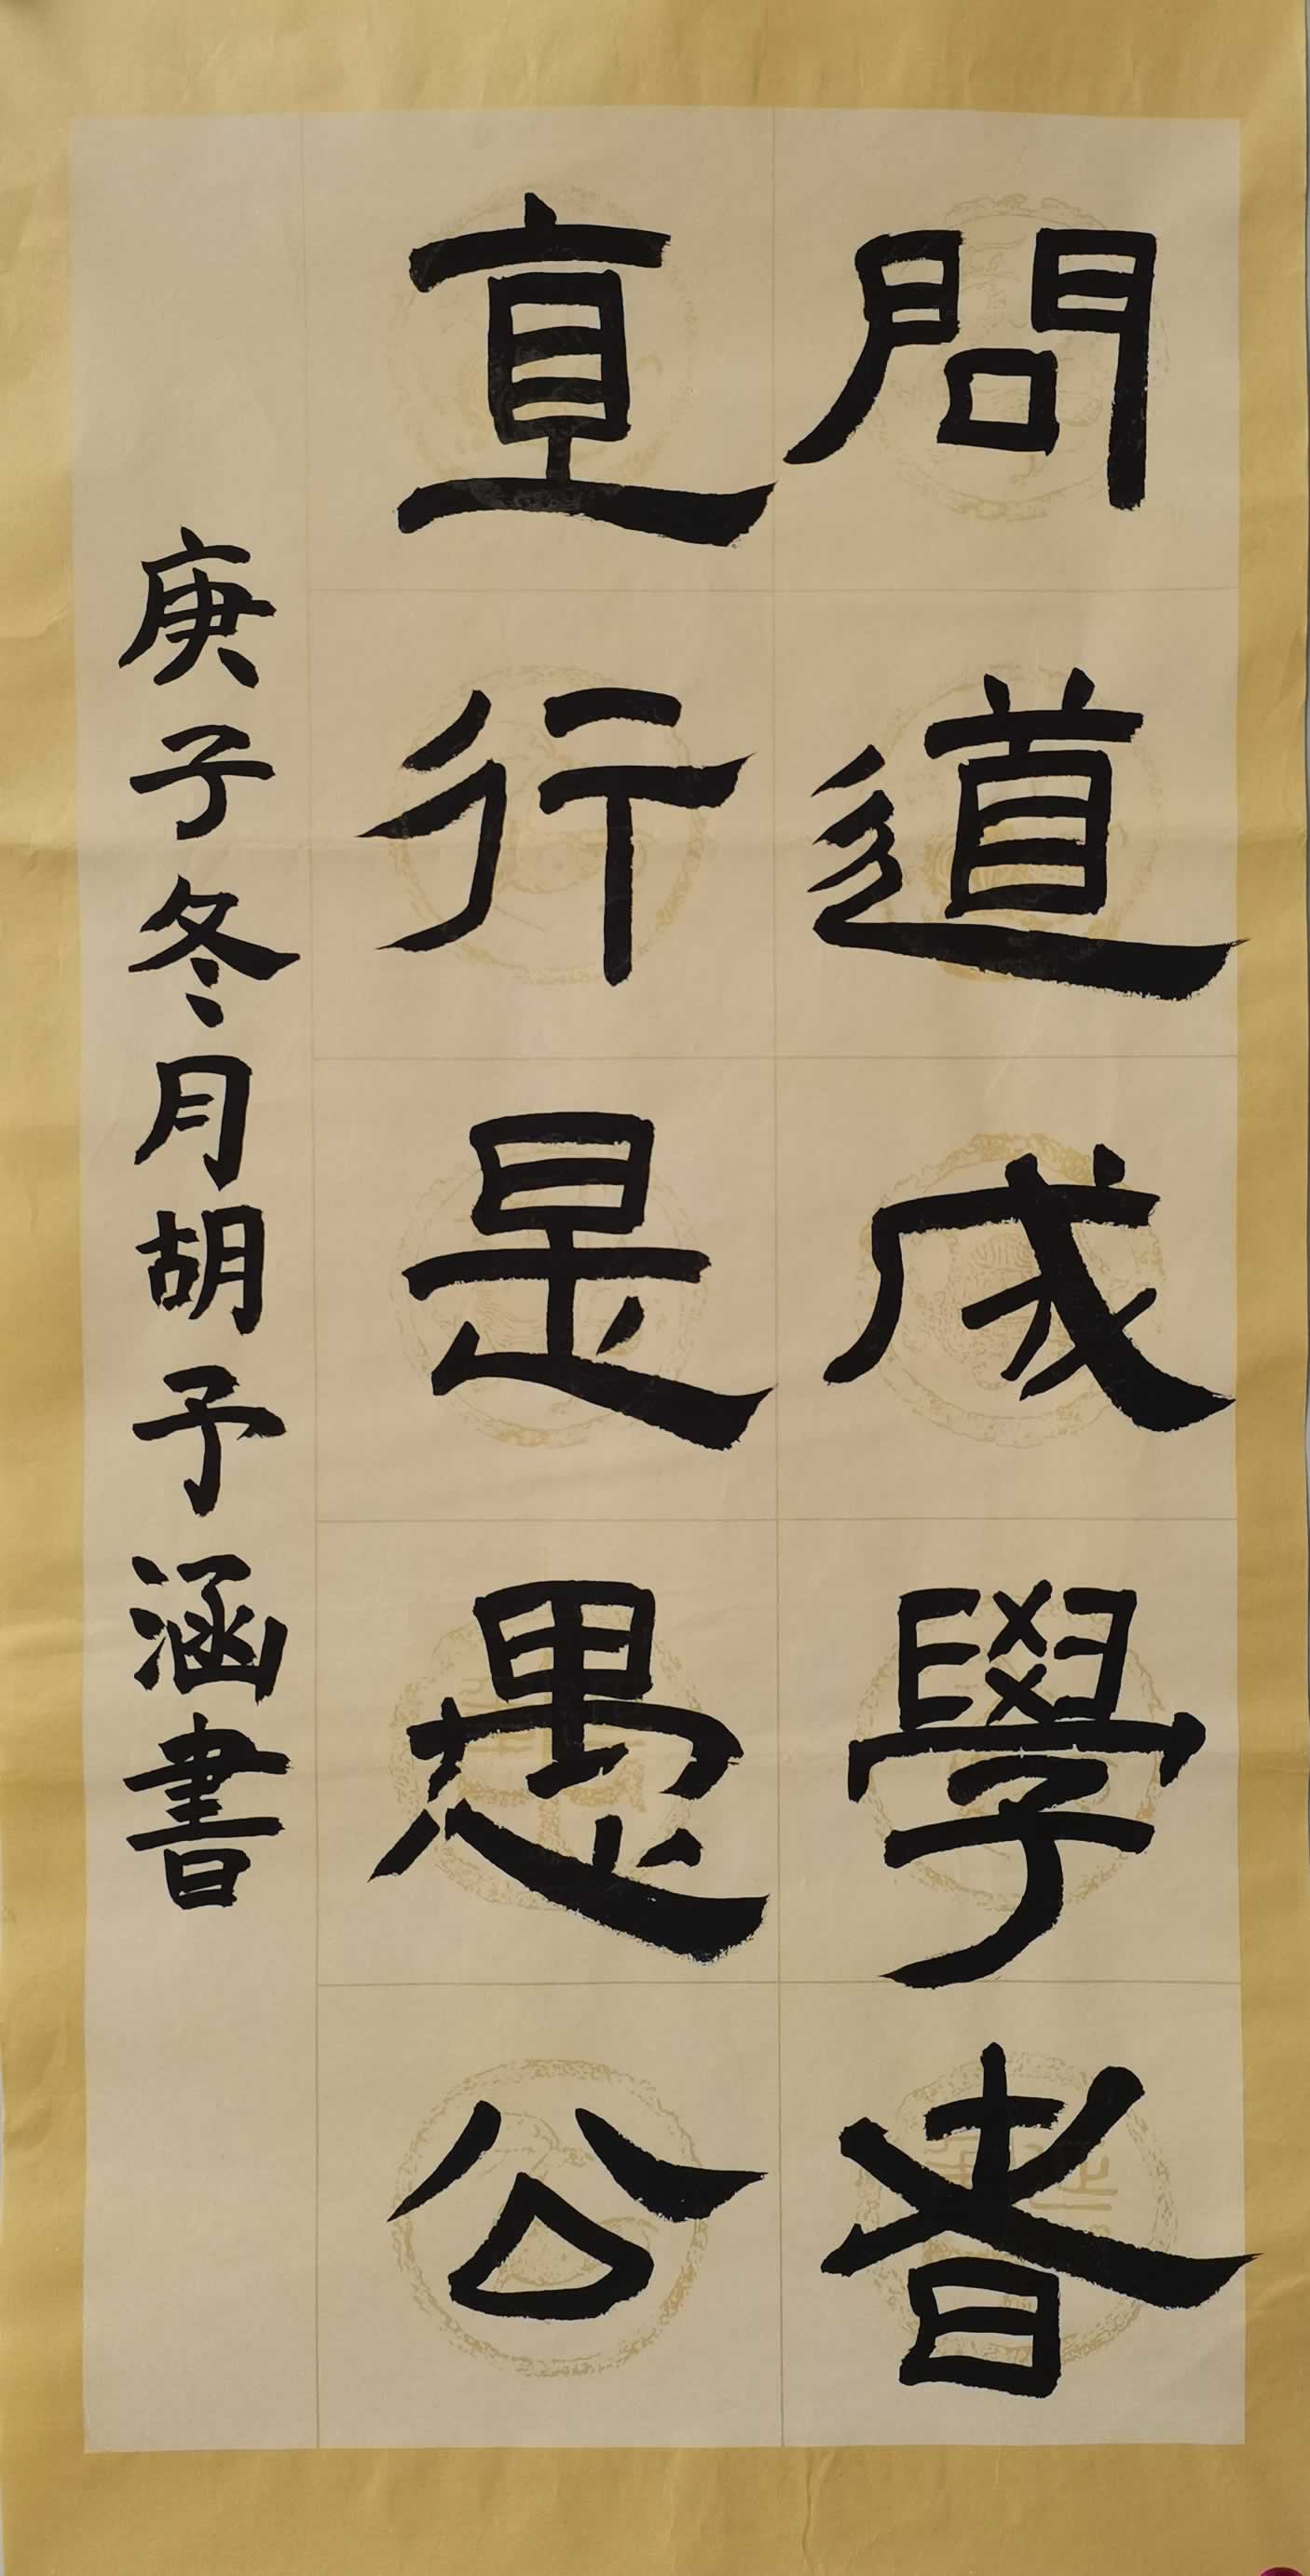 問道成學者
直行是愚公
庚子冬月胡予涵書